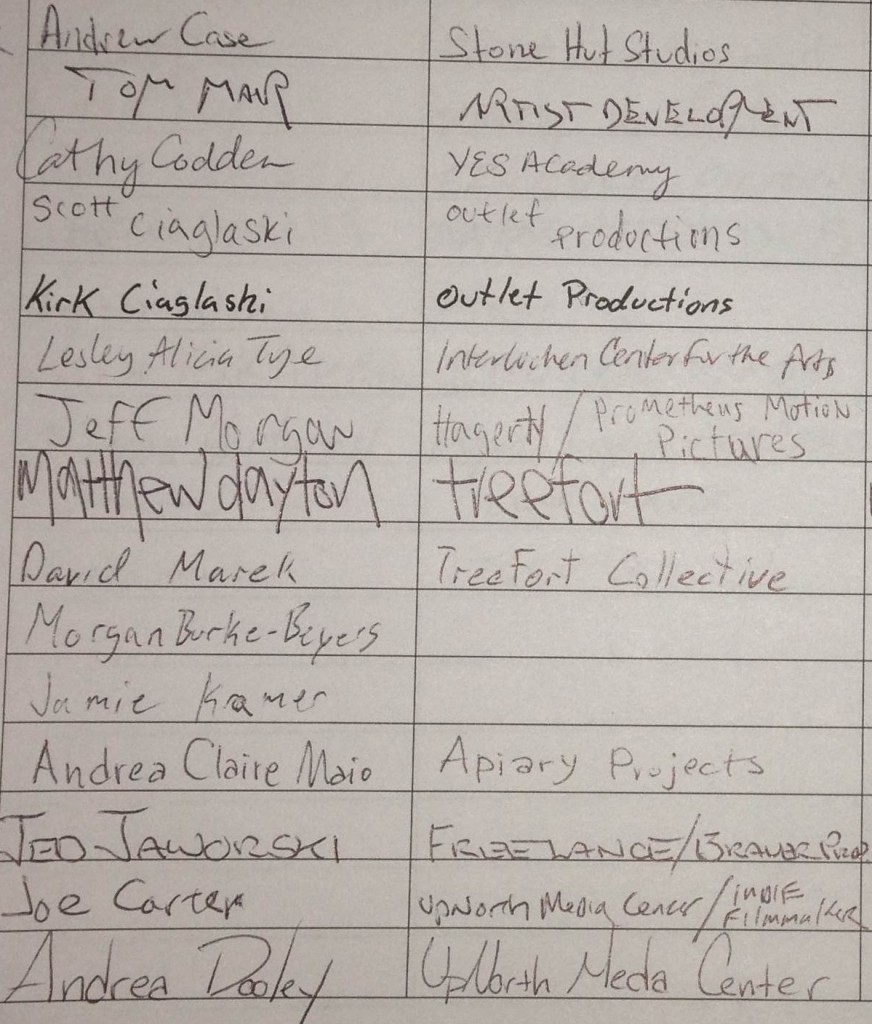 Andrew Case Stone Hut Studios
TOM MAIR ARTIST DEVELOPMENT
Cathy Codden YES Academy
Scott Ciaglaski outlet productions
Kirk Ciaglaski Outlet Productions
Lesley Alicia Tye Interlochen Center for the Arts
Jeff Morgan Hagerty / Prometheus Motion
Pictures
Matthew dayton treefort
David Marek TreeFort Collective
Morgan Burke-Beyers
Jamie Kramer
Andrea Claire Maio Apiary Projects
JED JAWORSKI FREELANCE/BRAUER PROD
Joe Carter UpNorth Media Center / INDIE
Filmmaker
Andrea Dooley UpNorth Meda Center